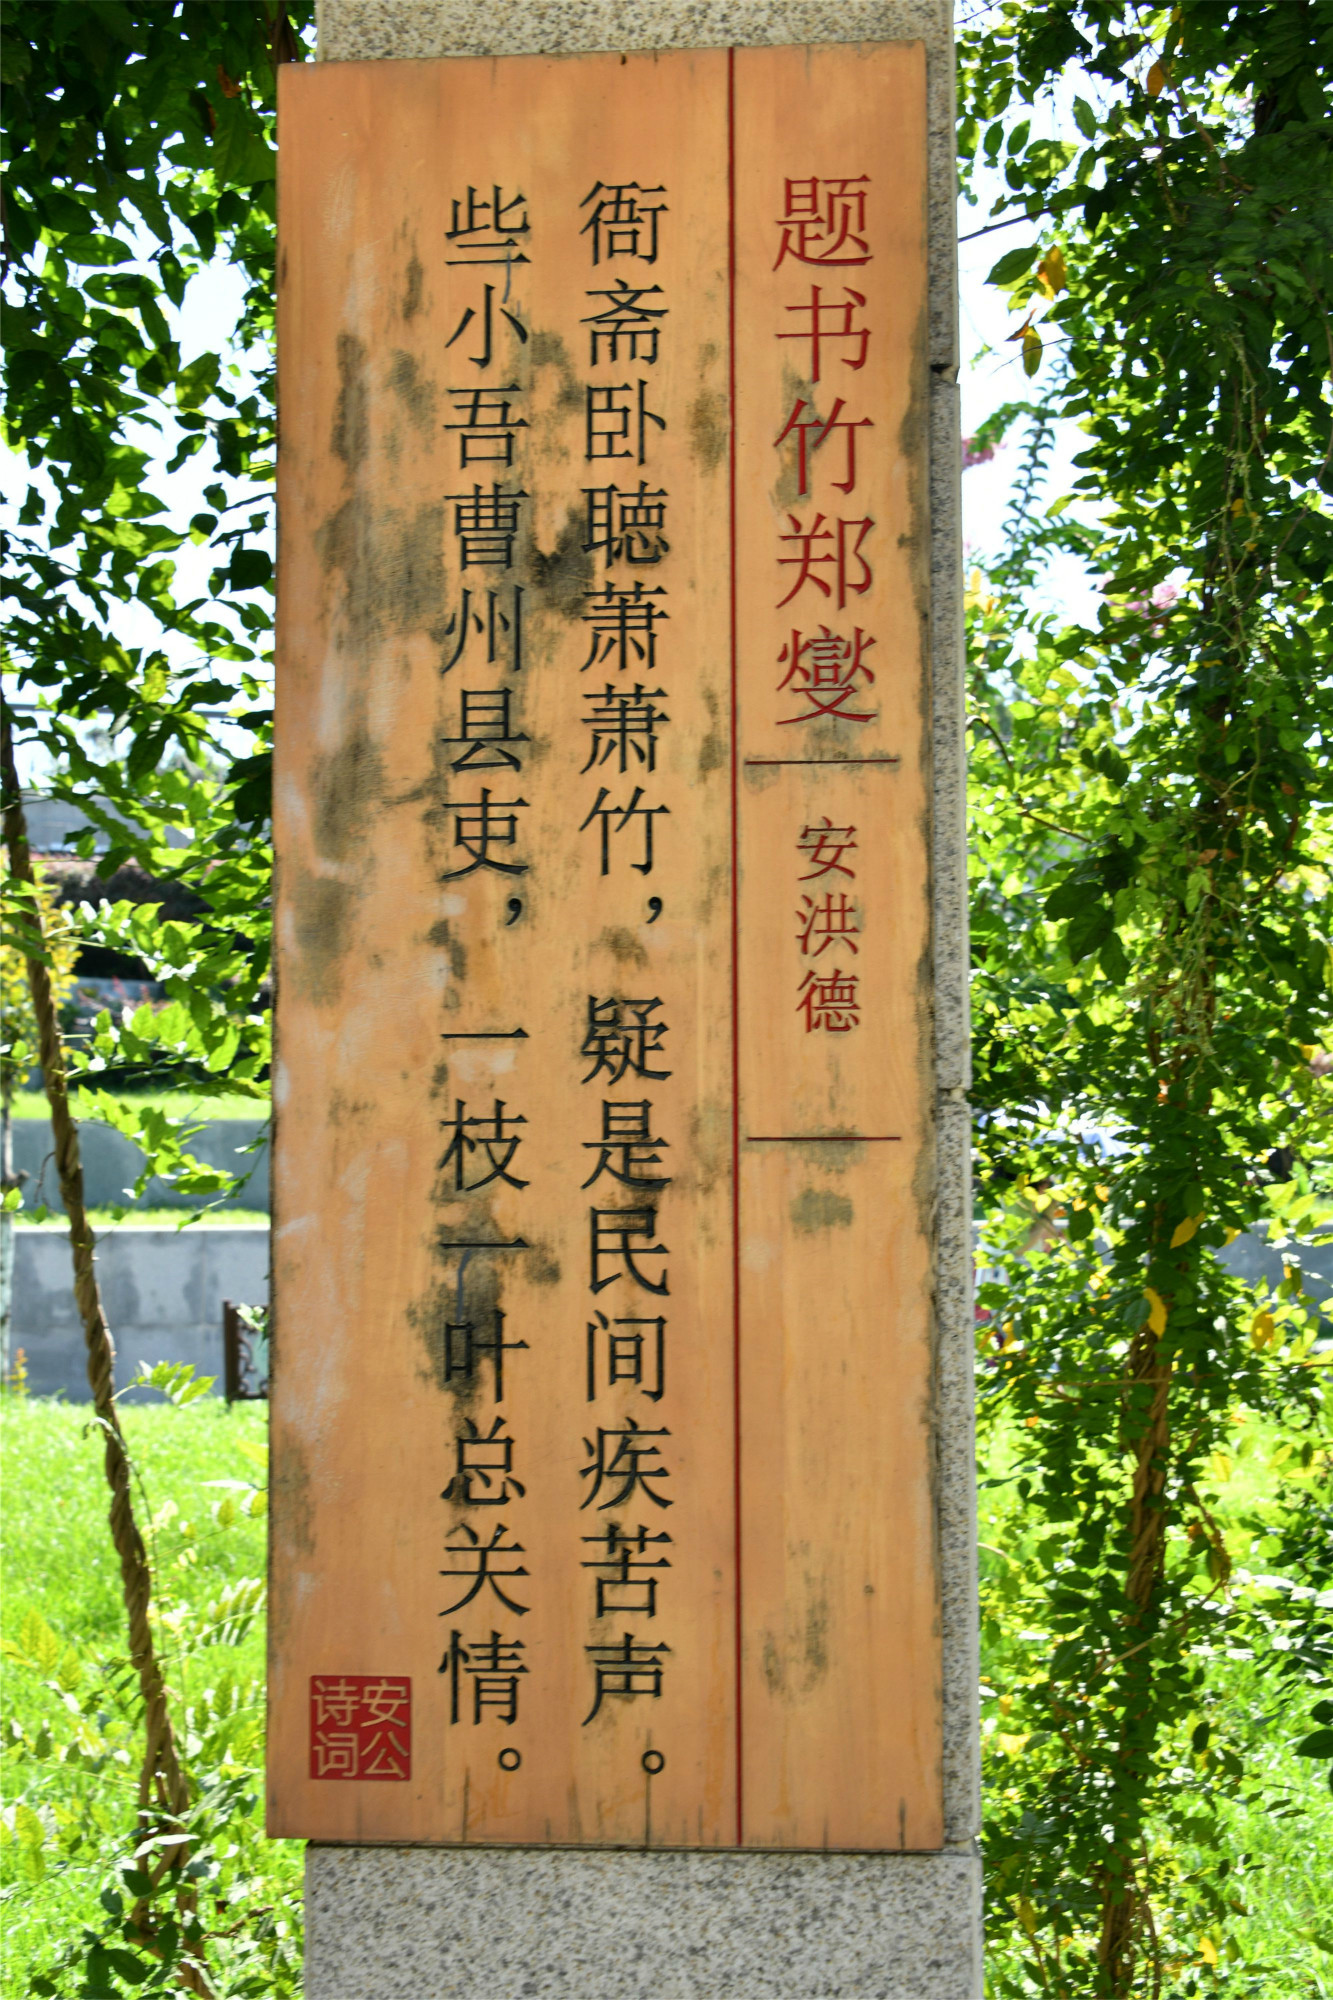 题书竹郑燮
安洪德
衙斋卧聴萧萧竹，疑是民间疾苦声。
些小吾曹州县吏，一枝一叶总关情。
安公
诗词